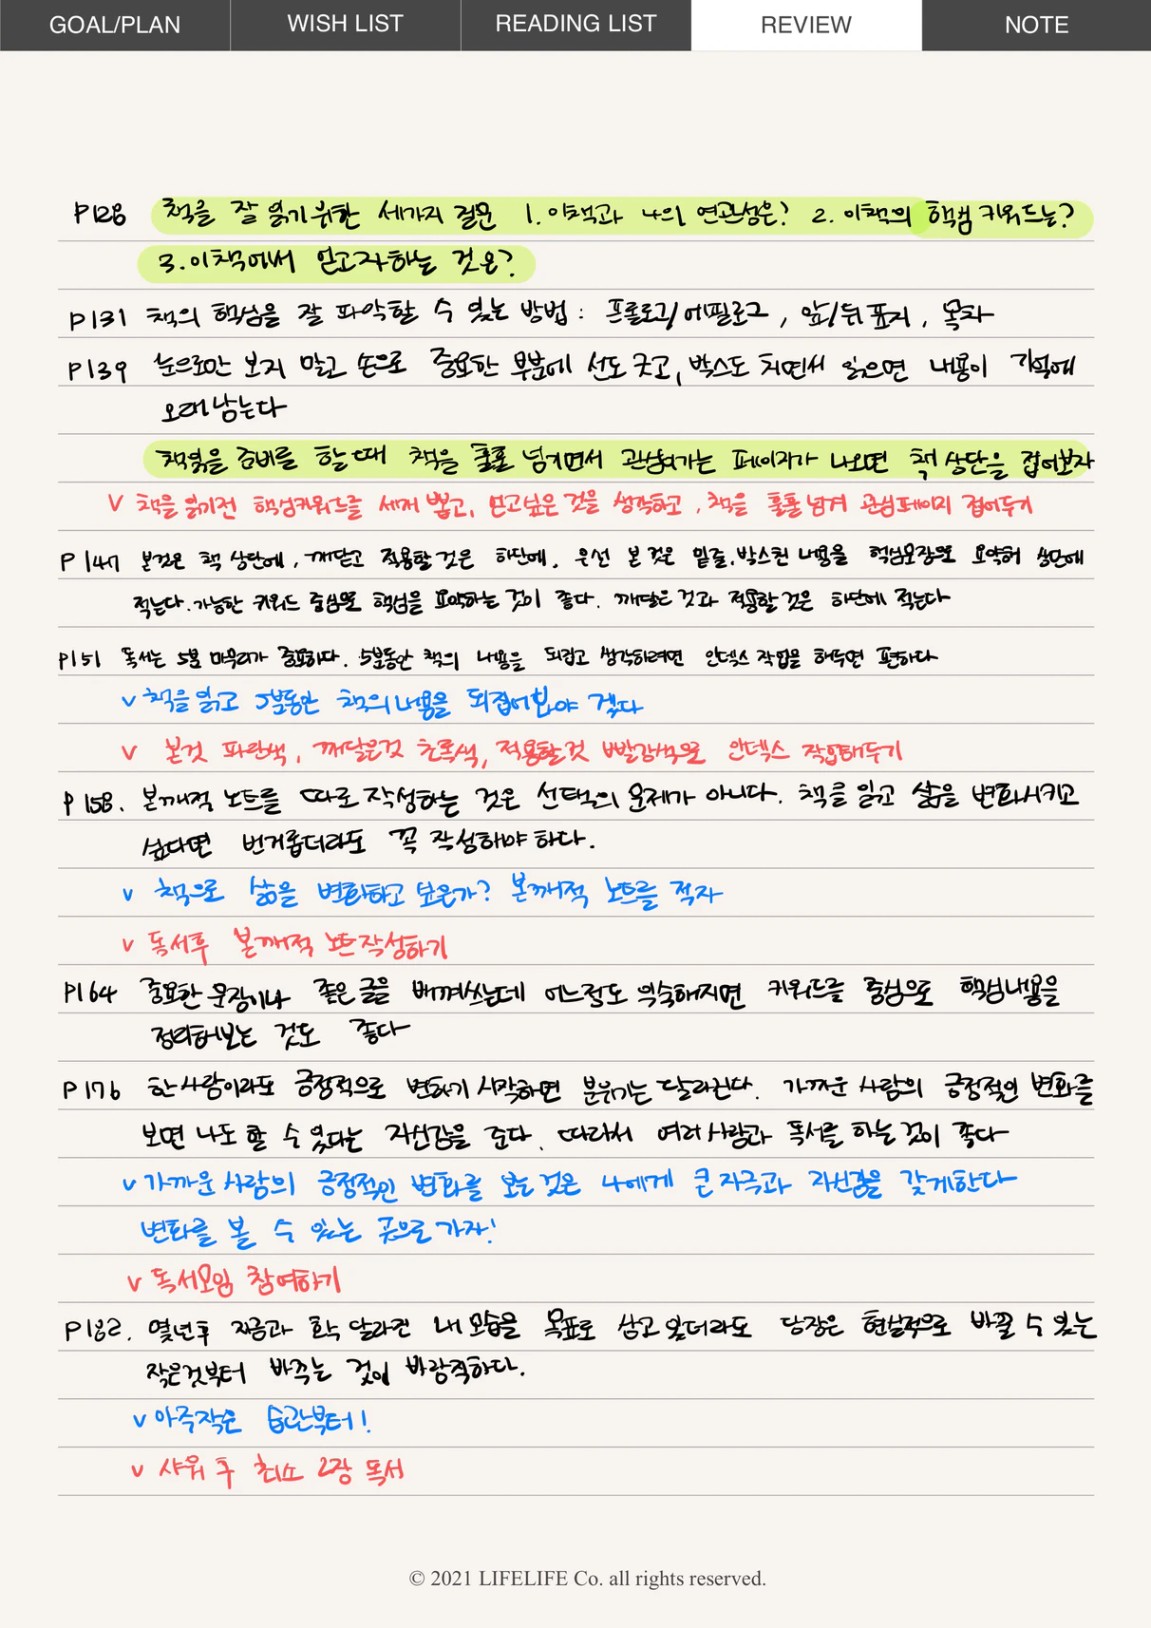 GOAL/PLAN WISH LIST READING LIST REVIEW NOTE
P128 책을 잘 읽기위한 세가지 질문 1. 이책과 나의 연관성은? 2. 이책의 핵심 키워드는?
3. 이책에서 얻고자하는 것은?
P131 책의 핵심을 잘 파악할 수 있는 방법 : 프롤로그/에필로그, 앞/뒤 표지, 목차
P139 눈으로만 보지 말고 손으로 중요한 부분에 선도 긋고, 박스도 치면서 읽으면 내용이 기억에
오래 남는다
책읽을 준비를 할 때 책을 훌훌 넘기면서 관심이가는 페이지가 나오면 책 상단을 접어보자
V 책을 읽기전 핵심키워드를 세개 뽑고, 얻고싶은 것을 생각하고, 책을 훌훌 넘겨 관심페이지 접어두기
P147 본것은 책 상단에, 깨닫고 적용할 것은 하단에. 우선 본 것은 밑줄, 박스친 내용을 핵심문장으로 요약해 상단에
적는다. 가능한 키워드 중심으로 핵심을 요약하는 것이 좋다. 깨달은 것과 적용할 것은 하단에 적는다
P151 독서는 5분 마무리가 중요하다. 5분동안 책의 내용을 되집고 생각하려면 인덱스 작업을 해두면 편하다
V 책을 읽고 5분동안 책의내용을 되집어봐야 겠다
V 본것 파란색, 깨달은것 초록색, 적용할것 빨강색으로 인덱스 작업해두기
P158. 본깨적 노트를 따로 작성하는 것은 선택의 문제가 아니다. 책을 읽고 삶을 변화시키고
싶다면 번거롭더라도 꼭 작성해야 하다.
V 책으로 삶을 변화하고 싶은가? 본깨적 노트를 적자
V 독서후 본깨적 노트작성하기
P164 중요한 문장이나 좋은 글을 베껴쓰는데 어느정도 익숙해지면 키워드를 중심으로 핵심내용을
정리해보는 것도 좋다
P176 한사람이라도 긍정적으로 변화기 시작하면 분위기는 달라진다. 가까운 사람의 긍정적인 변화를
보면 나도 할 수 있다는 자신감을 준다. 따라서 여러사람과 독서를 하는것이 좋다
V 가까운 사람의 긍정적인 변화를 보는 것은 나에게 큰 자극과 자신감을 갖게한다
변화를 볼 수 있는 곳으로 가자!
V 독서모임 참여하기
P182. 몇년후 지금과 확 달라진 내 모습을 목표로 삼고 있더라도 당장은 현실적으로 바꿀 수 있는
작은것부터 바꾸는 것이 바람직하다.
V 아주작은 습관부터!
V 샤워 후 최소 2장 독서
© 2021 LIFELIFE Co. all rights reserved.